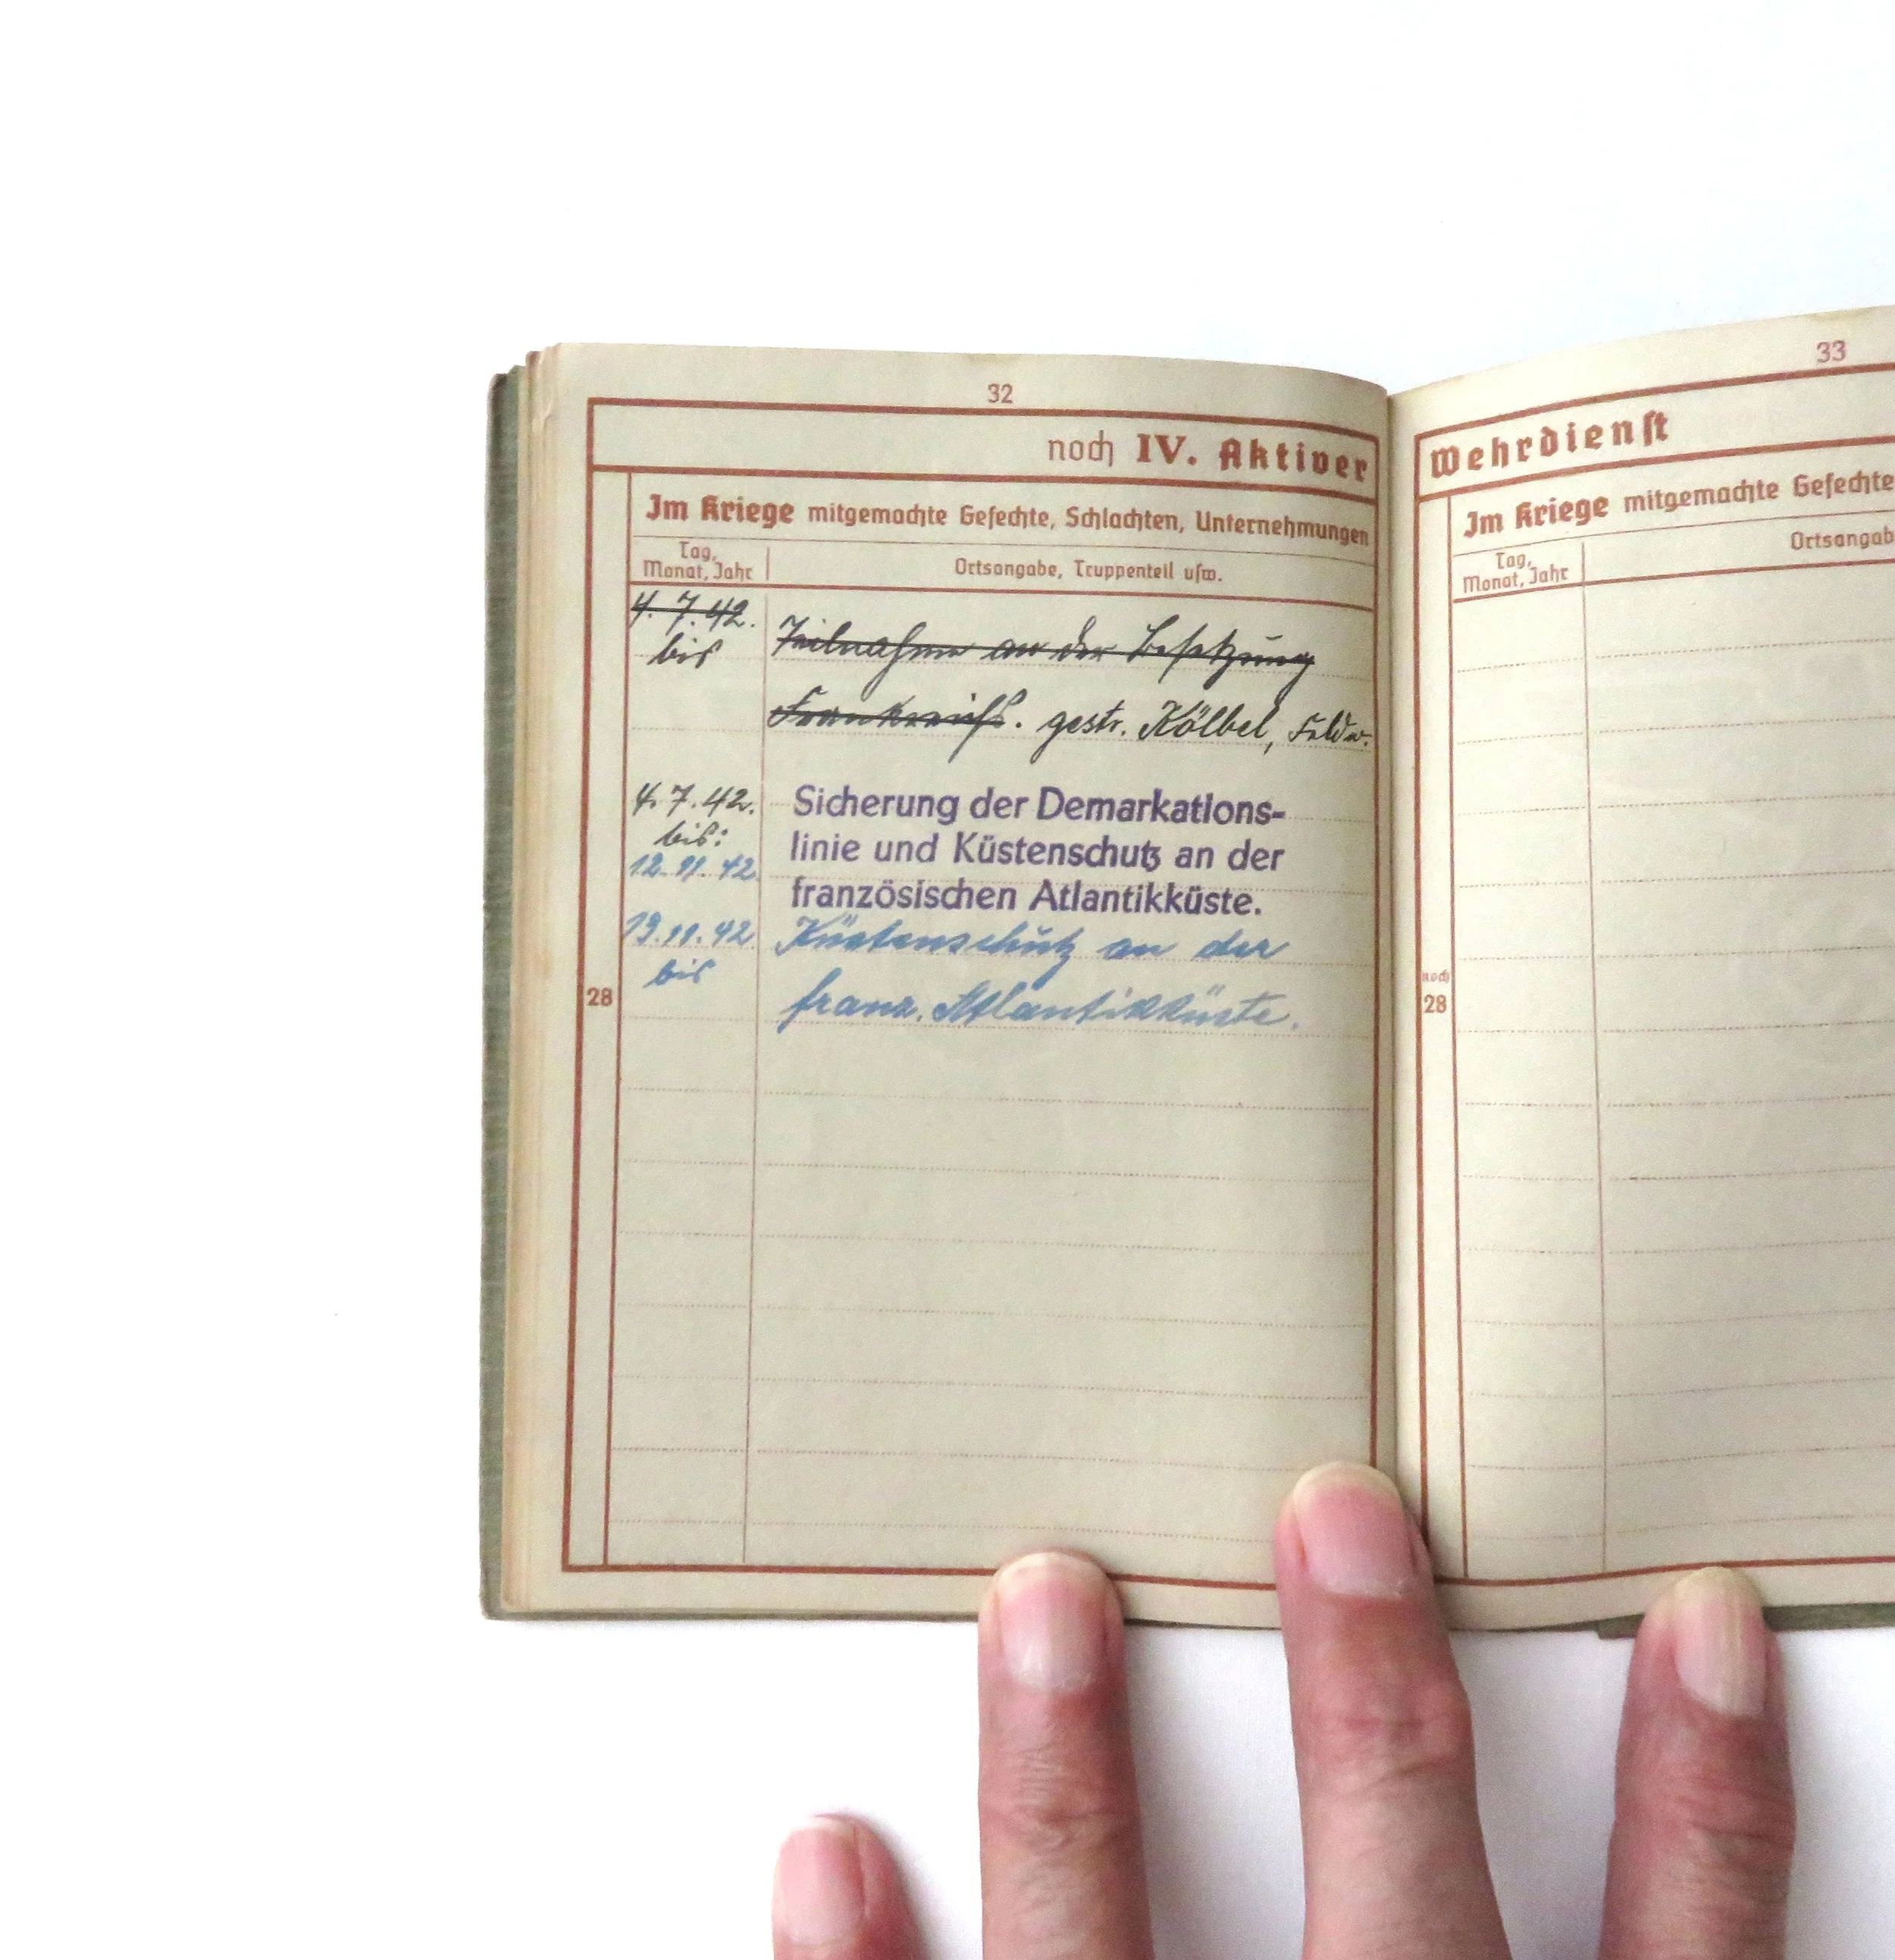 32
noch IV. Aktiver
Im Kriege mitgemachte Gefechte, Schlachten, Unternehmungen
Tag, Monat, Jahr
Ortsangabe, Truppenteil usw.
4. 7. 42. Teilnahme an der Besetzung
bis
Frankreichs. gestr. Kölbel, Feldw.
4. 7. 42. Sicherung der Demarkations-
bis: linie und Küstenschutz an der
12. 11. 42. französischen Atlantikküste.
13. 11. 42. Küstenschutz an der
bis franz. Atlantikküste.
28
33
Wehrdienst
Im Kriege mitgemachte Gefechte
Tag, Monat, Jahr
Ortsangab
noch
28